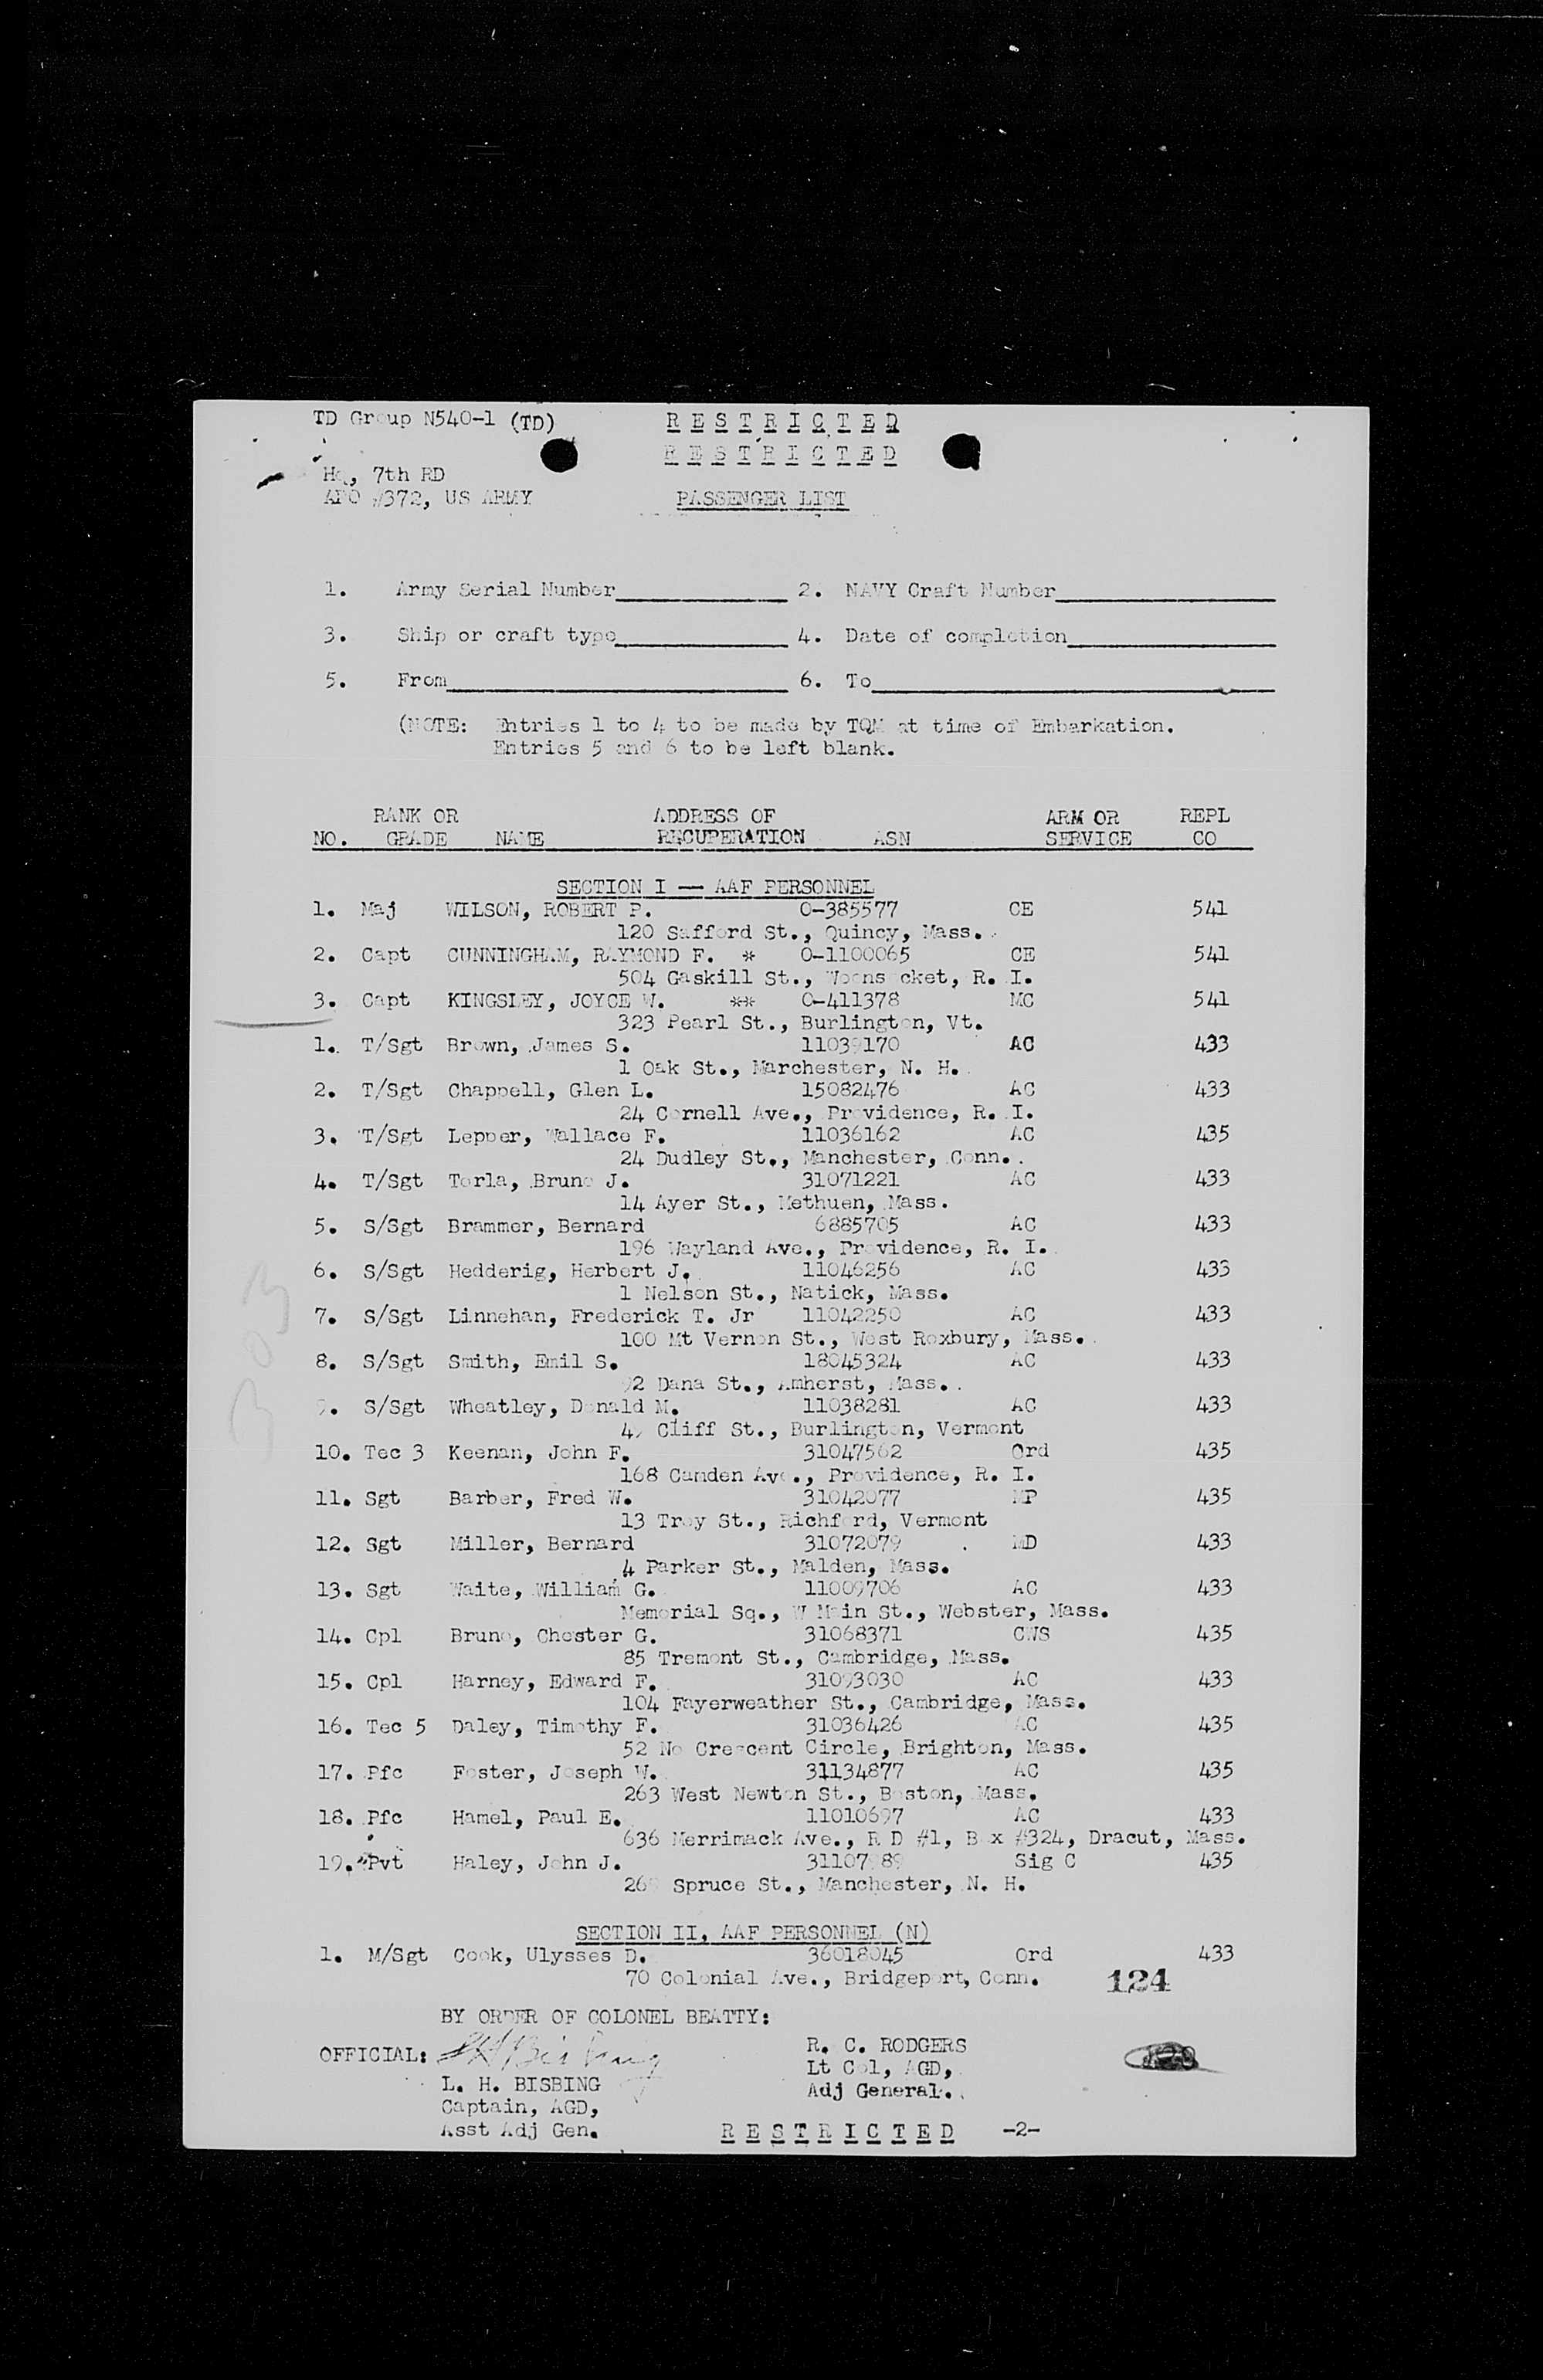 TD Group N540-1 (TD) R E S T R I C T E D
R E S T R I C T E D
Hq, 7th RD
APO #372, US ARMY PASSENGER LIST
1. Army Serial Number 2. NAVY Craft Number
3. Ship or craft type 4. Date of completion
5. From 6. To
(NOTE: Entries 1 to 4 to be made by TQM at time of Embarkation.
Entries 5 and 6 to be left blank.
RANK OR ADDRESS OF ARM OR REPL
NO. GRADE NAME RECUPERATION ASN SERVICE CO
SECTION I — AAF PERSONNEL
1. Maj WILSON, ROBERT P. O-385577 CE 541
120 Safford St., Quincy, Mass.
2. Capt CUNNINGHAM, RAYMOND F. * O-1100065 CE 541
504 Gaskill St., Woonsocket, R. I.
3. Capt KINGSLEY, JOYCE W. ** O-411378 MC 541
323 Pearl St., Burlington, Vt.
1. T/Sgt Brown, James S. 11039170 AC 433
1 Oak St., Marchester, N. H.
2. T/Sgt Chappell, Glen L. 15082476 AC 433
24 Cornell Ave., Providence, R. I.
3. T/Sgt Lepper, Wallace F. 11036162 AC 435
24 Dudley St., Manchester, Conn.
4. T/Sgt Torla, Bruno J. 31071221 AC 433
14 Ayer St., Methuen, Mass.
5. S/Sgt Brammer, Bernard 6885705 AC 433
196 Wayland Ave., Providence, R. I.
6. S/Sgt Hedderig, Herbert J. 11046256 AC 433
1 Nelson St., Natick, Mass.
7. S/Sgt Linnehan, Frederick T. Jr 11042250 AC 433
100 Mt Vernon St., West Roxbury, Mass.
8. S/Sgt Smith, Emil S. 18045324 AC 433
92 Dana St., Amherst, Mass.
9. S/Sgt Wheatley, Donald M. 11038281 AC 433
Cliff St., Burlington, Vermont
10. Tec 3 Keenan, John F. 31047562 Ord 435
168 Camden Ave., Providence, R. I.
11. Sgt Barber, Fred W. 31042077 MP 435
13 Troy St., Richford, Vermont
12. Sgt Miller, Bernard 31072079 MD 433
4 Parker St., Malden, Mass.
13. Sgt Waite, William G. 11009706 AC 433
Memorial Sq., W Main St., Webster, Mass.
14. Cpl Bruno, Chester G. 31068371 CWS 435
85 Tremont St., Cambridge, Mass.
15. Cpl Harney, Edward F. 31093030 AC 433
104 Fayerweather St., Cambridge, Mass.
16. Tec 5 Daley, Timothy F. 31036426 AC 435
52 No Crescent Circle, Brighton, Mass.
17. Pfc Foster, Joseph W. 31134877 AC 435
263 West Newton St., Boston, Mass.
18. Pfc Hamel, Paul E. 11010697 AC 433
636 Merrimack Ave., R D #1, Box #324, Dracut, Mass.
19. Pvt Haley, John J. Sig C 435
Spruce St., Manchester, N. H.
SECTION II, AAF PERSONNEL (N)
1. M/Sgt Cook, Ulysses D. 36018045 Ord 433
70 Colonial Ave., Bridgeport, Conn. 124
BY ORDER OF COLONEL BEATTY:
OFFICIAL: LH Bisbing R. C. RODGERS
Lt Col, AGD,
L. H. BISBING Adj General.
Captain, AGD,
Asst Adj Gen. R E S T R I C T E D -2-
303